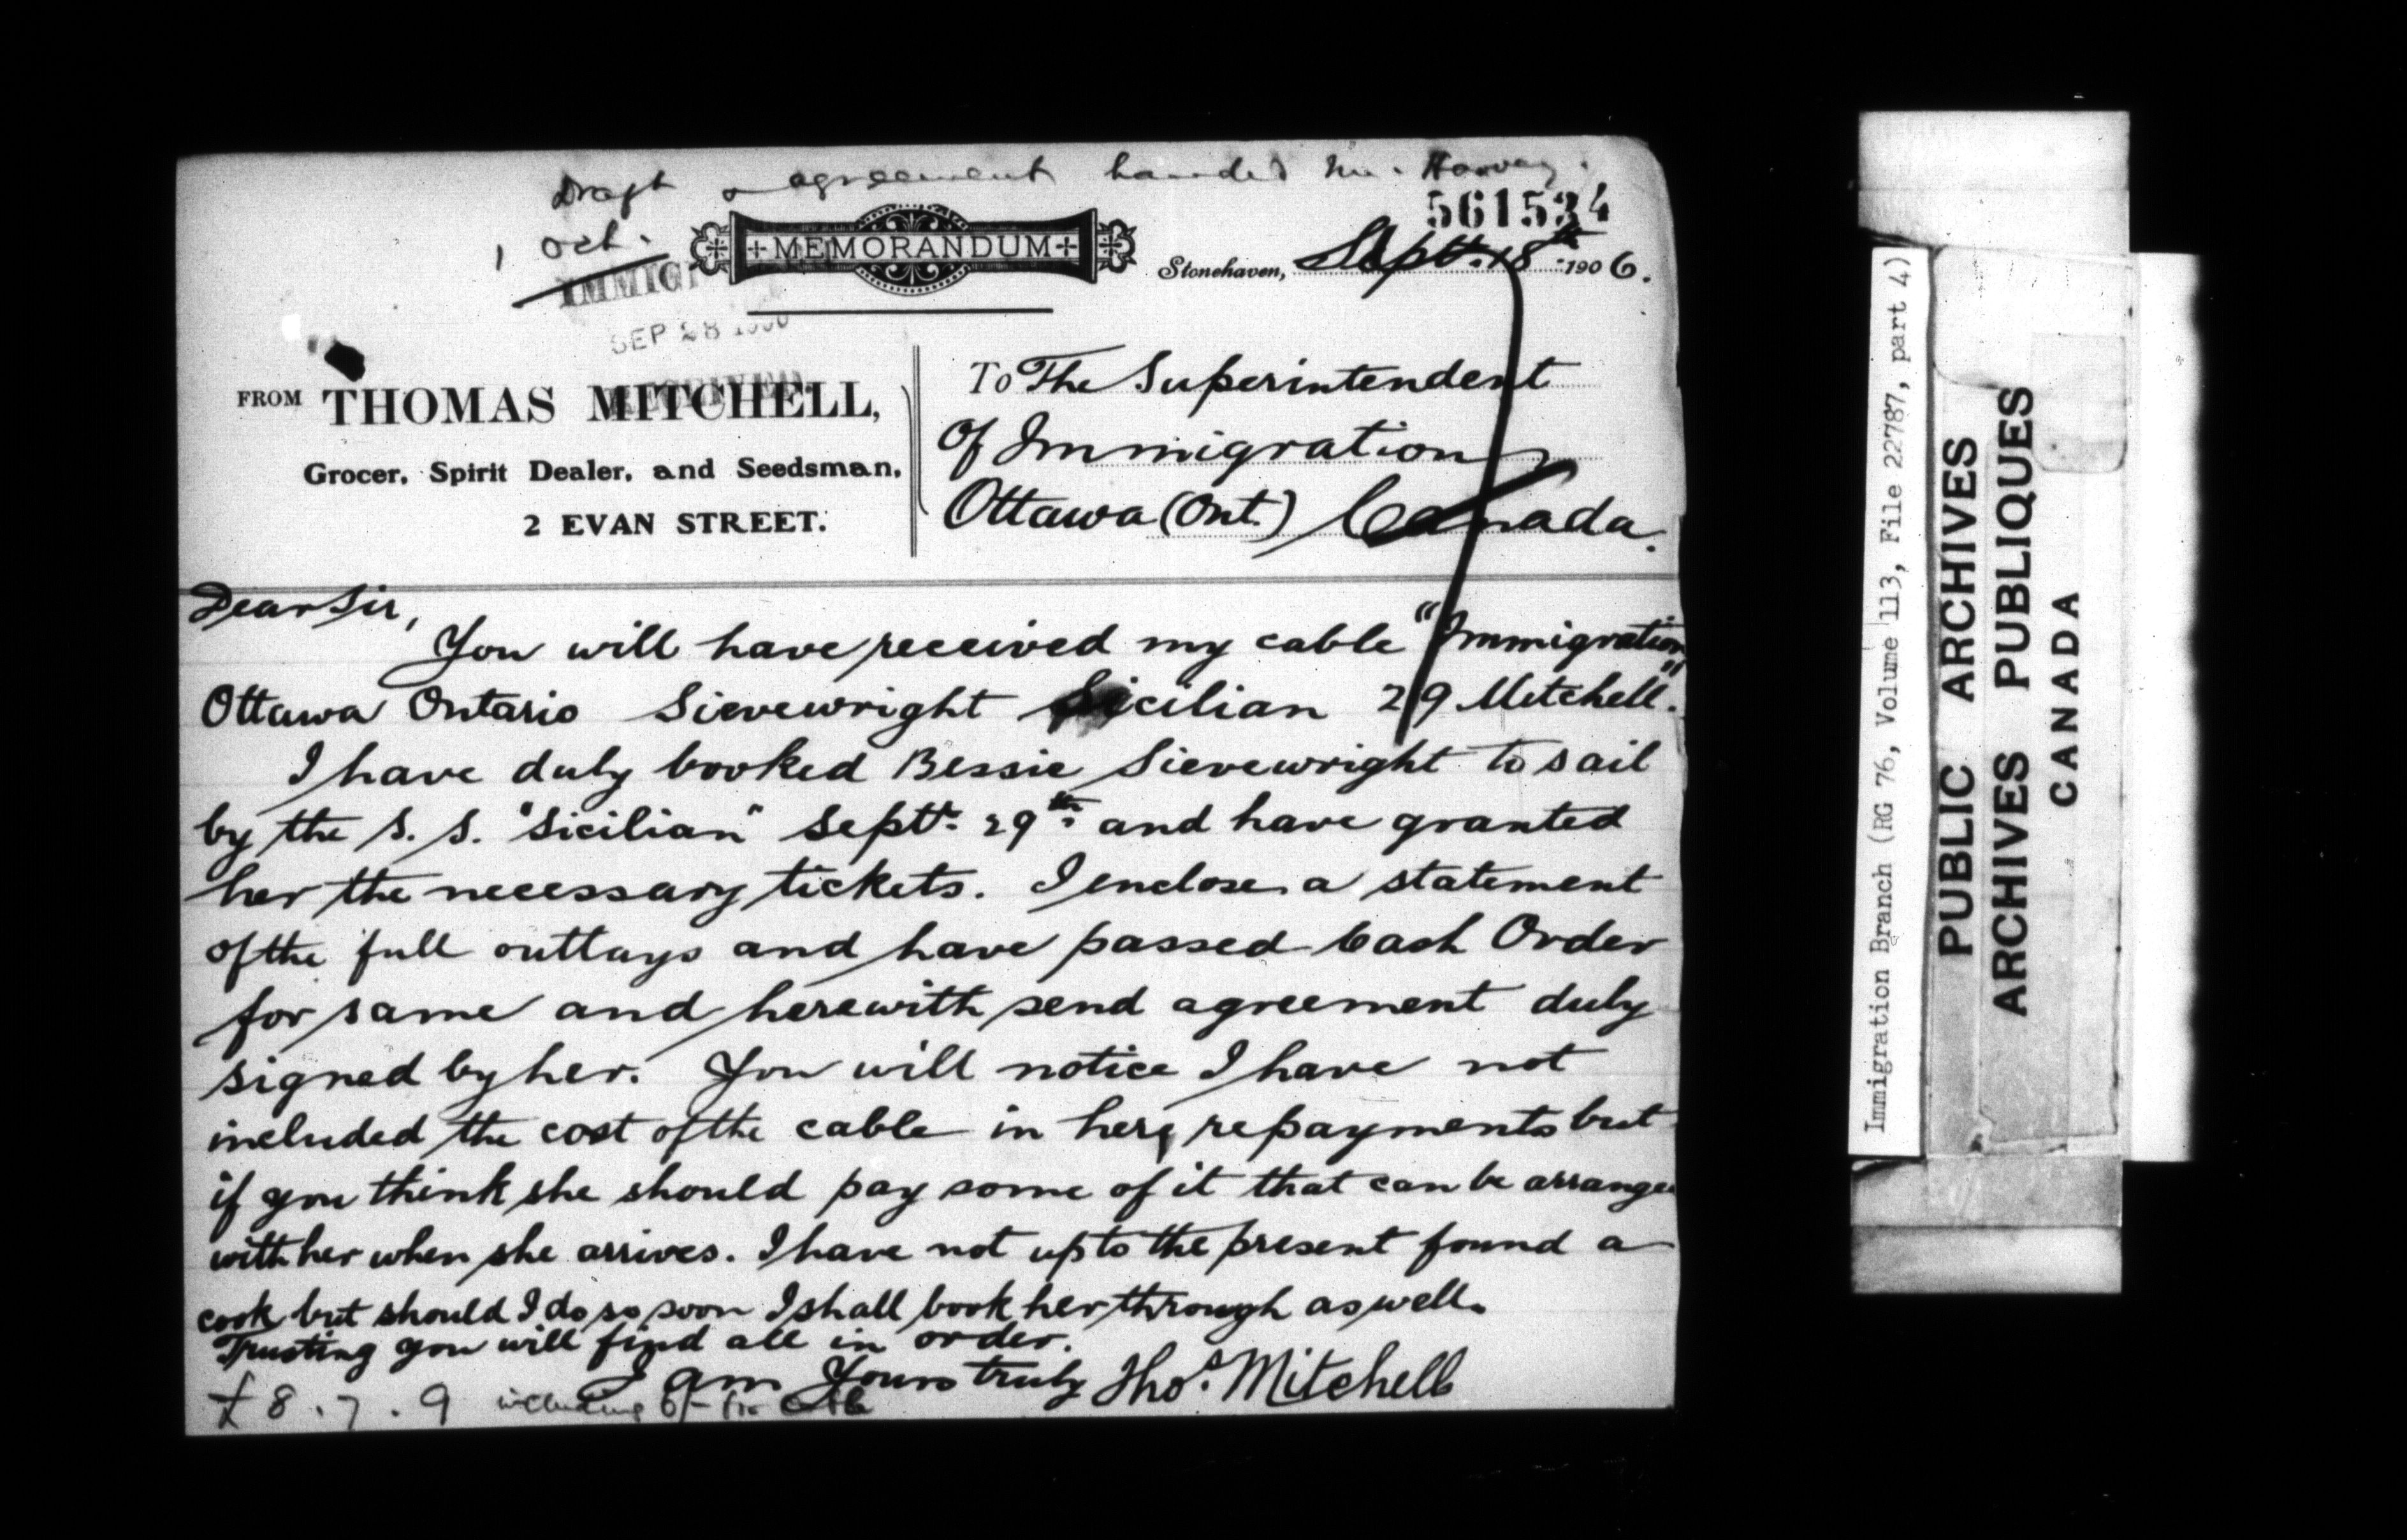 Draft & agreement handed Mr. Harvey.
1 Oct.
561534
MEMORANDUM
Stonehaven, Sept. 18th 1906.
IMMIG
SEP 28 1906
RECEIVED
FROM THOMAS MITCHELL,
Grocer, Spirit Dealer, and Seedsman,
2 EVAN STREET.
To The Superintendent
Of Immigration
Ottawa (Ont.) Canada.
Dear Sir,
You will have received my cable "Immigration
Ottawa Ontario Sievewright Sicilian 29 Mitchell".
I have duly booked Bessie Sievewright to sail
by the S. S. "Sicilian" Septr. 29th and have granted
her the necessary tickets. I enclose a statement
of the full outlays and have passed Cash Order
for same and herewith send agreement duly
signed by her. You will notice I have not
included the cost of the cable in her repayments but
if you think she should pay some of it that can be arranged
with her when she arrives. I have not up to the present found a
cook but should I do so soon I shall book her through as well.
Trusting you will find all in order.
I am Yours truly Thos. Mitchell
£8.7.9 including 6/- for cable
Immigration Branch (RG 76, Volume 113, File 22787, part 4)
PUBLIC ARCHIVES
ARCHIVES PUBLIQUES
CANADA